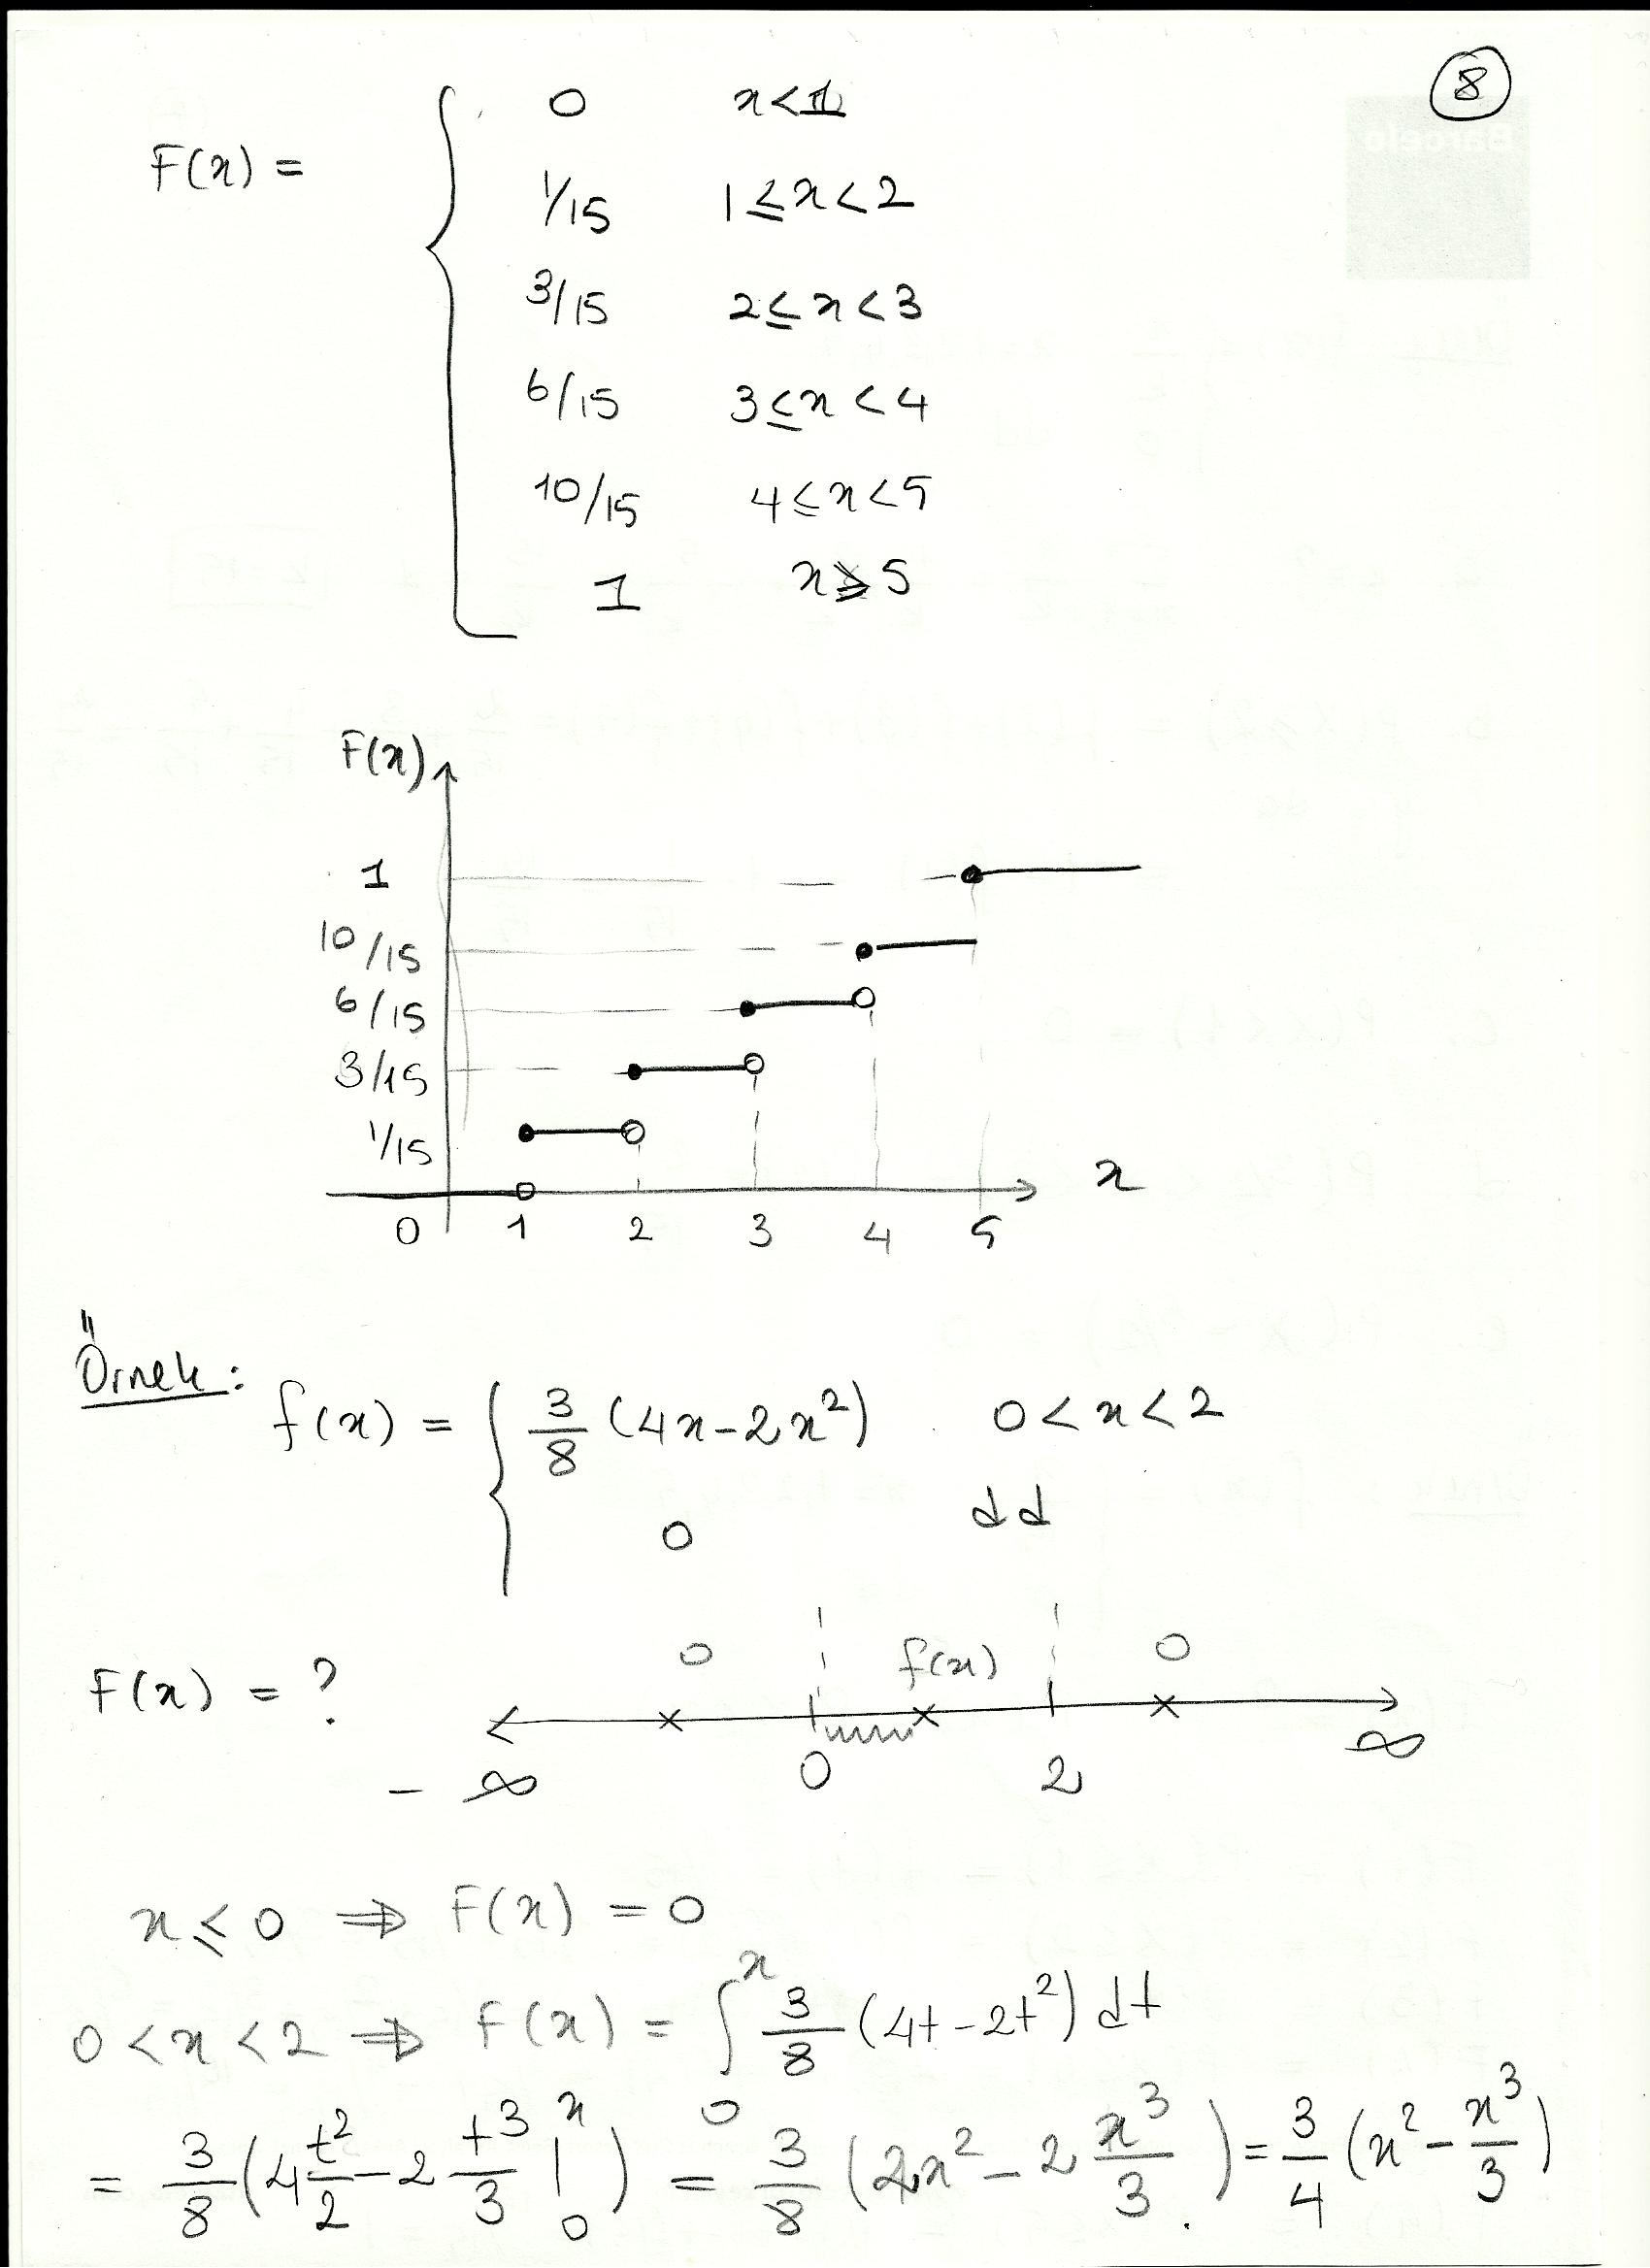 8
F(x) = { 0 x<1
1/15 1≤x<2
3/15 2≤x<3
6/15 3≤x<4
10/15 4≤x<5
1 x≥5
F(x)
1
10/15
6/15
3/15
1/15
x
0 1 2 3 4 5
Örnek: f(x) = { 3/8 (4x-2x²) 0<x<2
0 dd
F(x) = ?
0 f(x) 0
-∞ 0 2 ∞
x≤0 ⇒ F(x) = 0
0<x<2 ⇒ F(x) = ∫₀ˣ 3/8 (4t-2t²) dt
= 3/8 (4 t²/2 - 2 t³/3 |₀ˣ) = 3/8 (2x² - 2 x³/3) = 3/4 (x² - x³/3)